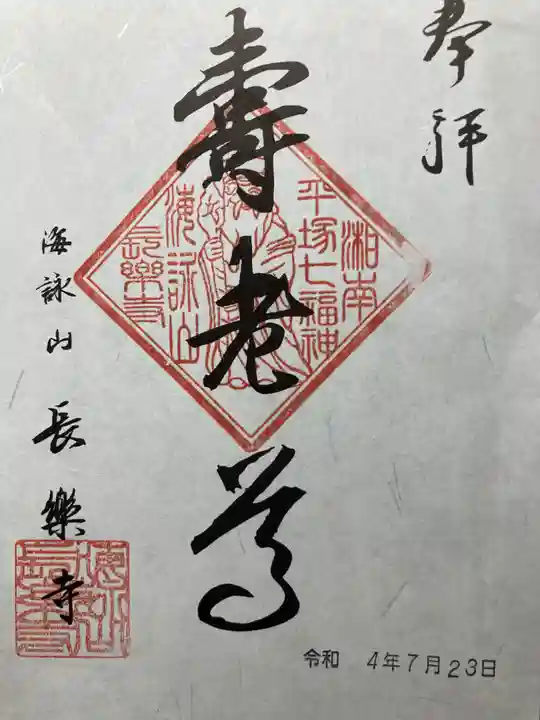 奉拝
湘南
平塚七福神
壽老尊
海詠山
長樂寺
海詠山 長樂寺
海詠山
長樂寺
令和 4年7月23日